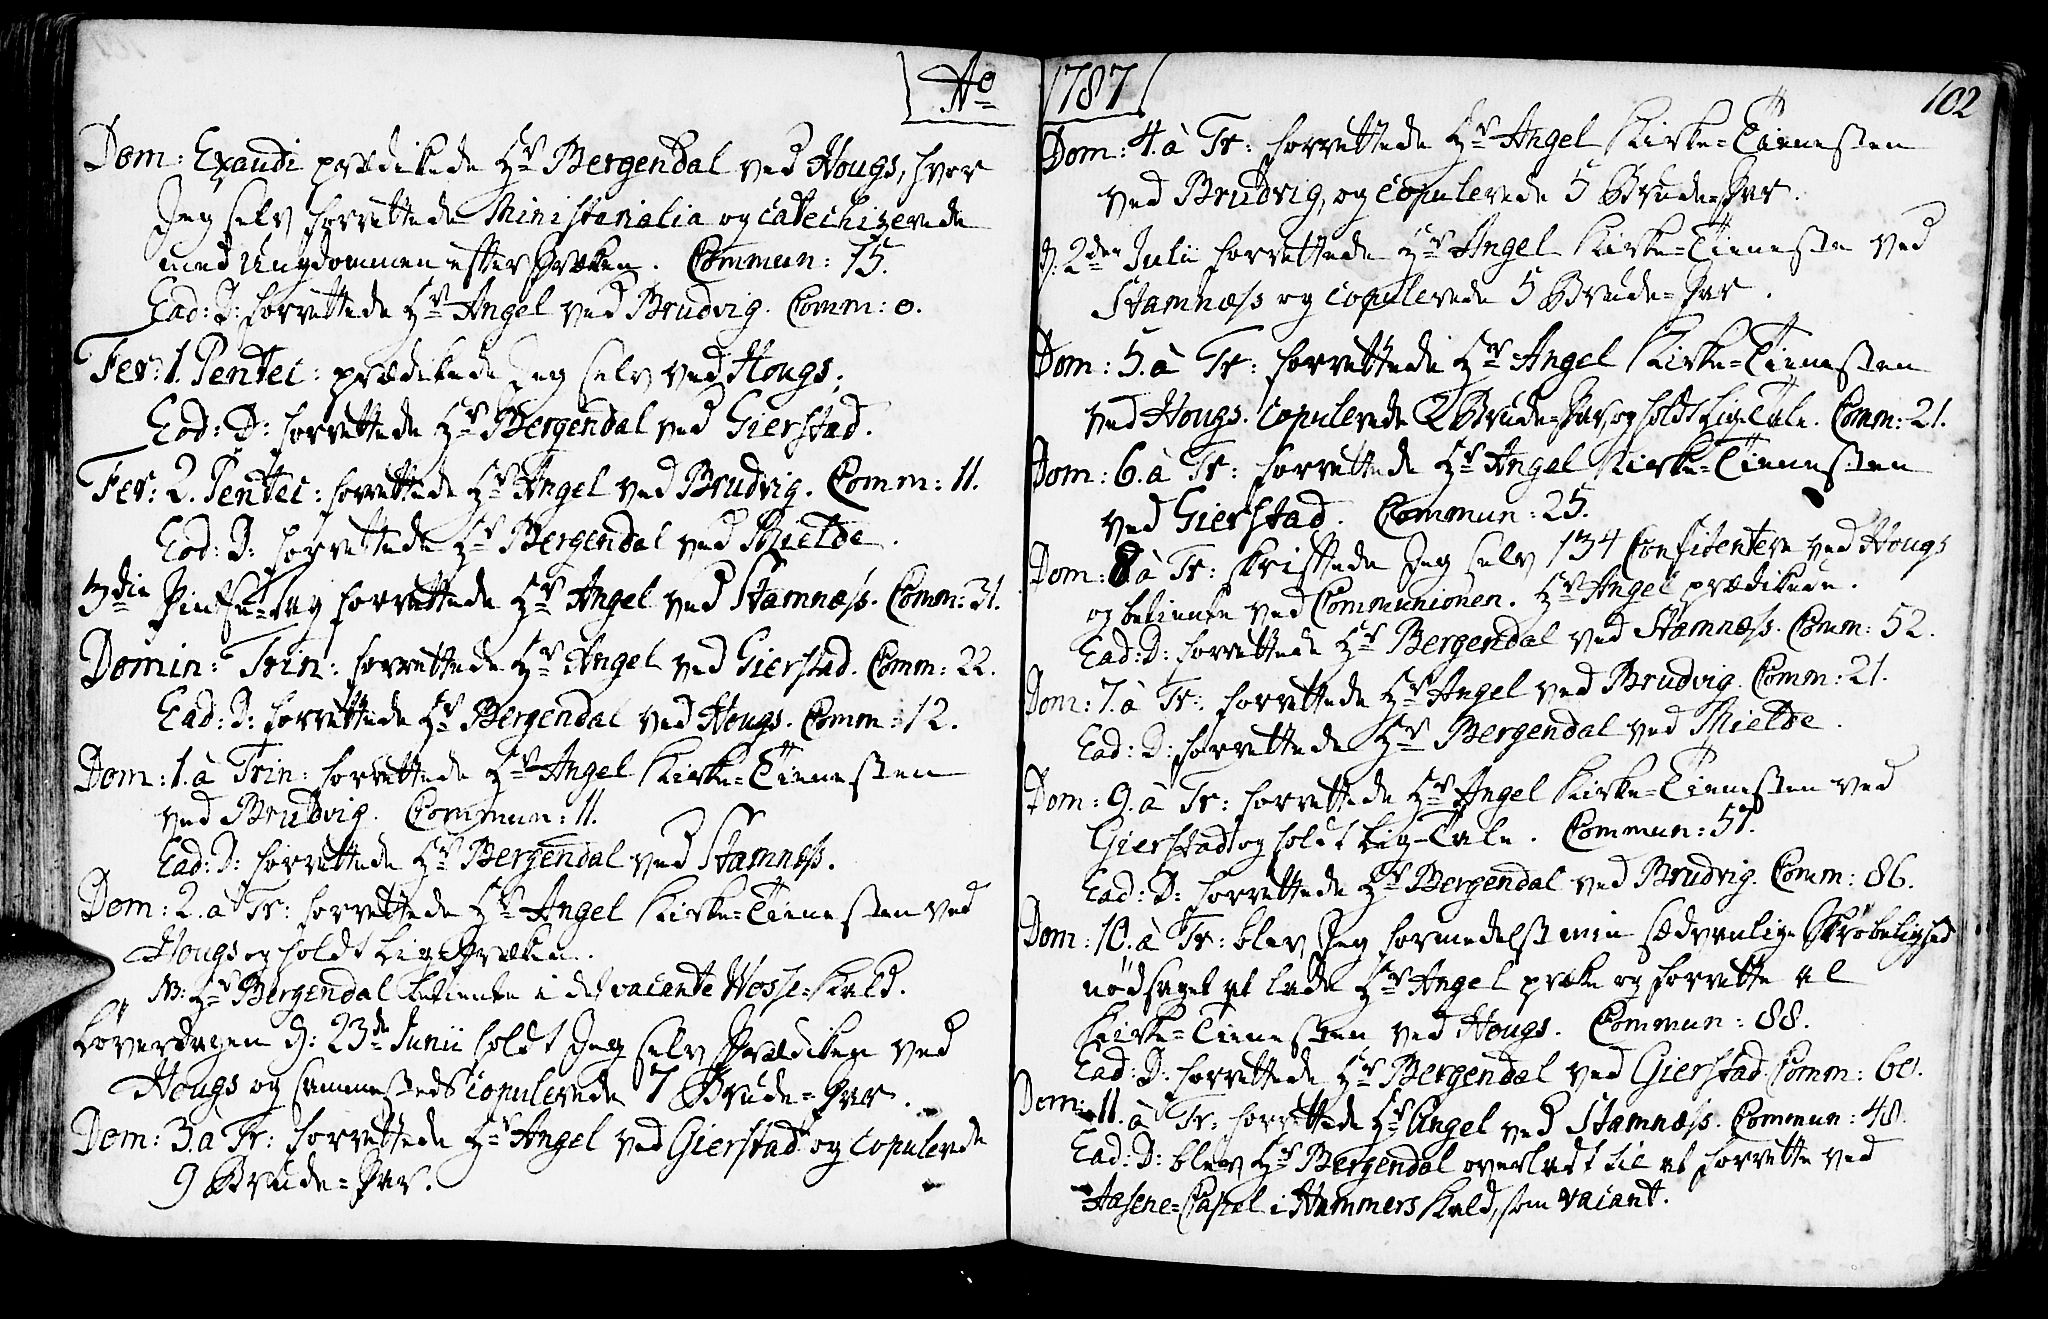 Ao 1787
102
Dom: Exaudi prædikede Hr Bergendal ved Hougs, hvor
Jeg selv forrettede Ministerialia og catechizerede
med Ungdommen efter Præken. Commun: 15.
Ead: D: forrettede Hr Angel ved Brudvig. Comm: 0.
Fer: 1. Pentec: prædikede Jeg selv ved Hougs;
Eod: D: forrettede Hr Bergendal ved Gierstad.
Fer: 2. Pentec: forrettede Hr Angel ved Brudvig. Comm: 11.
Eod: D: forrettede Hr Bergendal ved Mielde.
3die Pintse-Dag forrettede Hr Angel ved Stamnæss. Comm: 31.
Domin: Trin: forrettede Hr Angel ved Gierstad. Comm: 22.
Ead: D: forrettede Hr Bergendal ved Hougs. Comm: 12.
Dom: 1. à Trin: forrettede Hr Angel Kirke-Tienesten
ved Brudvig. Commun: 11.
Ead: D: forrettede Hr Bergendal ved Stamnæss.
Dom: 2. a Tr: forrettede Hr Angel Kirke-Tienesten ved
Hougs og holdt Lig-Præken.
NB: Hr Bergendal betiente i det vacante Wosse-Kald.
Løverdagen d: 23de Junii holdt Jeg selv Prædiken ved
Hougs og sammesteds copulerede 7 Brude-Par.
Dom: 3. a Tr: forrettede Hr Angel ved Gierstad og copulerede
9 Brude-Par.
Dom: 4. à Tr: forrettede Hr Angel Kirke-Tienesten
ved Brudvig, og copulerede 5 Brude-Par.
d: 2den Julii forrettede Hr Angel Kirke-Tieneste ved
Stamnæss og copulerede 5 Brude-Par.
Dom: 5. à Tr: forrettede Hr Angel Kirke-Tienesten
ved Hougs. copulerede 2 Brude-Par, og holdt Lig-Tale. Comm: 21.
Dom: 6. à Tr: forrettede Hr Angel Kirke-Tienesten
ved Gierstad. Commun: 25.
Dom: 8 à Tr: skriftede Jeg selv 134 Confitentere ved Hougs
og betiente ved Communionen. Hr Angel prædikede.
Ead: D: forrettede Hr Bergendal ved Stamnæss. Comm: 52.
Dom: 7. à Tr: forrettede Hr Angel ved Brudvig. Comm: 21.
Ead: D: forrettede Hr Bergendal ved Mielde.
Dom: 9. à Tr: forrettede Hr Angel Kirke-Tienesten ved
Gierstad og holdt Lig-Tale. Commun: 57.
Ead: D: forrettede Hr Bergendal ved Brudvig. Comm: 86.
Dom: 10. à Tr: blev Jeg formedelst min sædvanlige Skrøbelighed
nødsaget at lade Hr Angel præke og forrette al
Kirke-Tienesten ved Hougs. Commun: 88.
Ead: D: forrettede Hr Bergendal ved Gierstad. Comm: 60.
Dom: 11. à Tr: forrettede Hr Angel ved Stamnæss. Commun: 48.
Ead: D: blev Hr Bergendal overladt til at forrette ved
Aasene-Capel i Hammers Kald, som vacant.